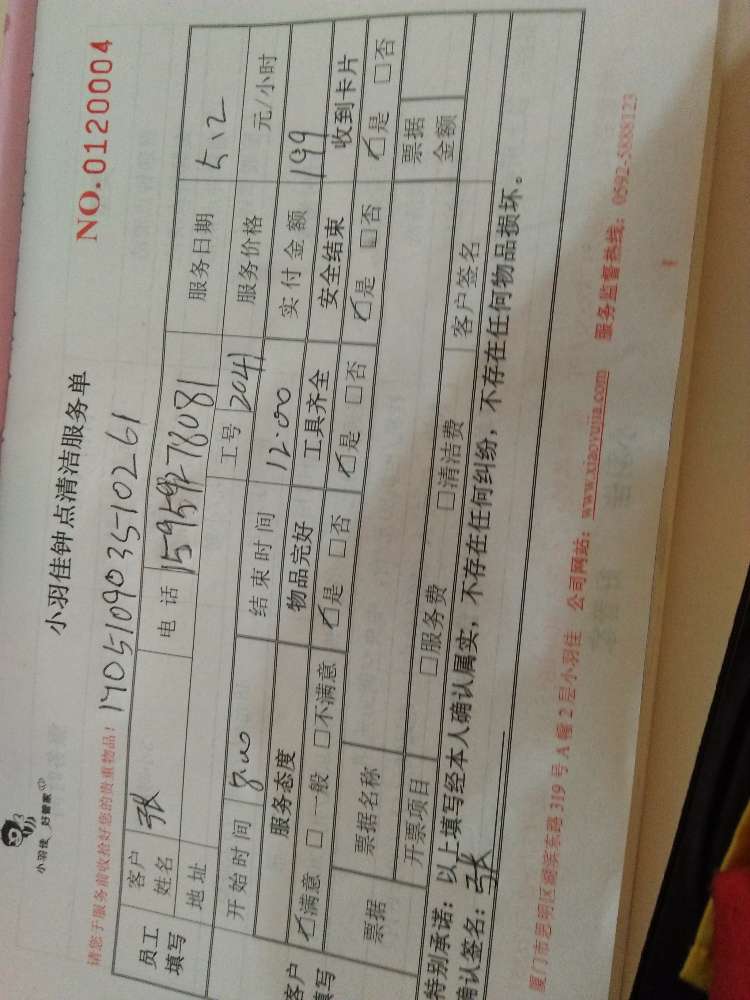 小羽佳 好管家
小羽佳钟点清洁服务单
NO.0120004
请您于服务前收拾好您的贵重物品!
170510903510261
员工填写 客户姓名 张 电话 15959278081 服务日期 5.12
地址 工号 2041 服务价格 元/小时
开始时间 8:00 结束时间 12:00 实付金额 199
客户填写 服务态度 物品完好 工具齐全 安全结束 收到卡片
☑满意 □一般 □不满意 ☑是 □否 ☑是 □否 ☑是 □否 ☑是 □否
票据 票据名称 票据金额
开票项目 □服务费 □清洁费 客户签名
特别承诺:以上填写经本人确认属实,不存在任何纠纷,不存在任何物品损坏。
确认签名:张
厦门市思明区湖滨东路319号A幢2层小羽佳 公司网站:www.xiaoyujia.com 服务监督热线:0592-5888123